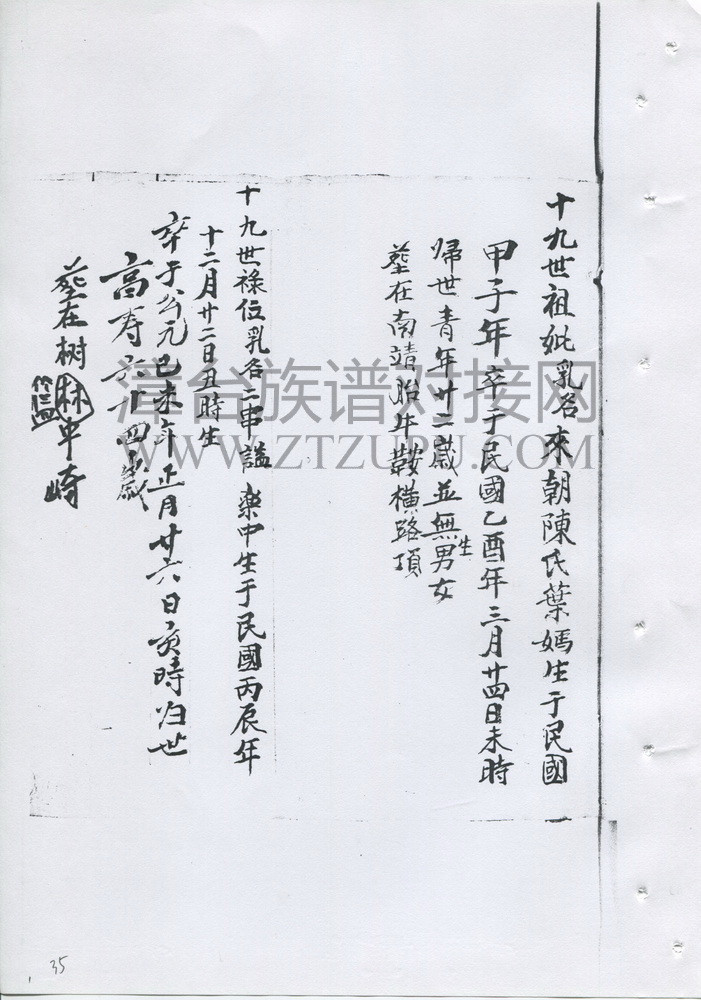 十九世祖妣乳名來朝陳氏葉媽生于民國
甲子年卒于民國乙酉年三月廿四日未時
歸世青年廿二歲並無生男女
墓在南靖胎年鞍橫路項
十九世祿位乳名二串謚樂中生于民國丙辰年
十二月廿二日丑時生
卒于公元己未年正月廿六日亥時归世
高寿六十四歲
墓在树林牛崎
漳台族谱对接网
WWW.ZTZUPU.COM
35